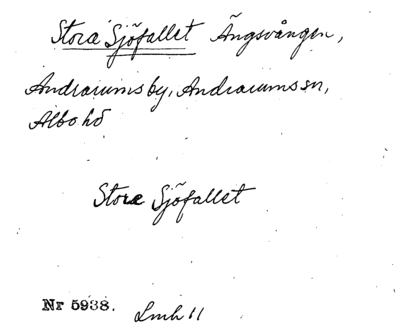 Stora Sjöfallet Ängsvången,
Andrarums by, Andrarums sn,
Albo hd
Stora Sjöfallet
Nr 5938. Lmh 11